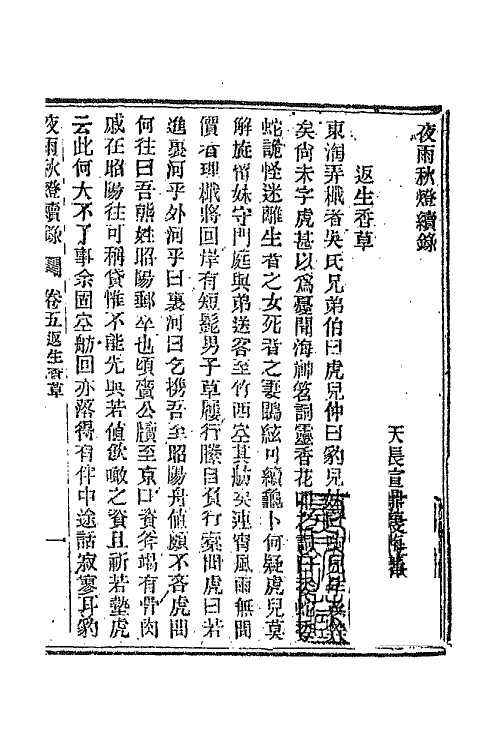 夜雨秋燈續錄
天長宣鼎瘦梅著
返生香草
東淘弄槳者吳氏兄弟伯曰虎兒仲曰豹兒
矣尚未字虎甚以爲憂聞海神筶詞靈香花
蛇詭怪迷離生者之女死者之妻鵾絃可續龜卜何疑虎兒莫
解旋留妹守門庭與弟送客至竹西空其舫矣連宵風雨無問
價者理檝將回岸有短髭男子草屨行縢自負行橐問虎曰若
進裏河乎外河乎曰裏河曰乞携吾至昭陽舟値願不吝虎問
何往曰吾熊姓昭陽郵卒也頃賫公牘至京口資斧竭有骨肉
戚在昭陽往可稱貸惟不能先與若値飲噉之資且祈若墊虎
云此何大不了事余固空舫回亦落得有伴中途話寂寥耳豹
夜雨秋燈續錄 卷五返生香草 一